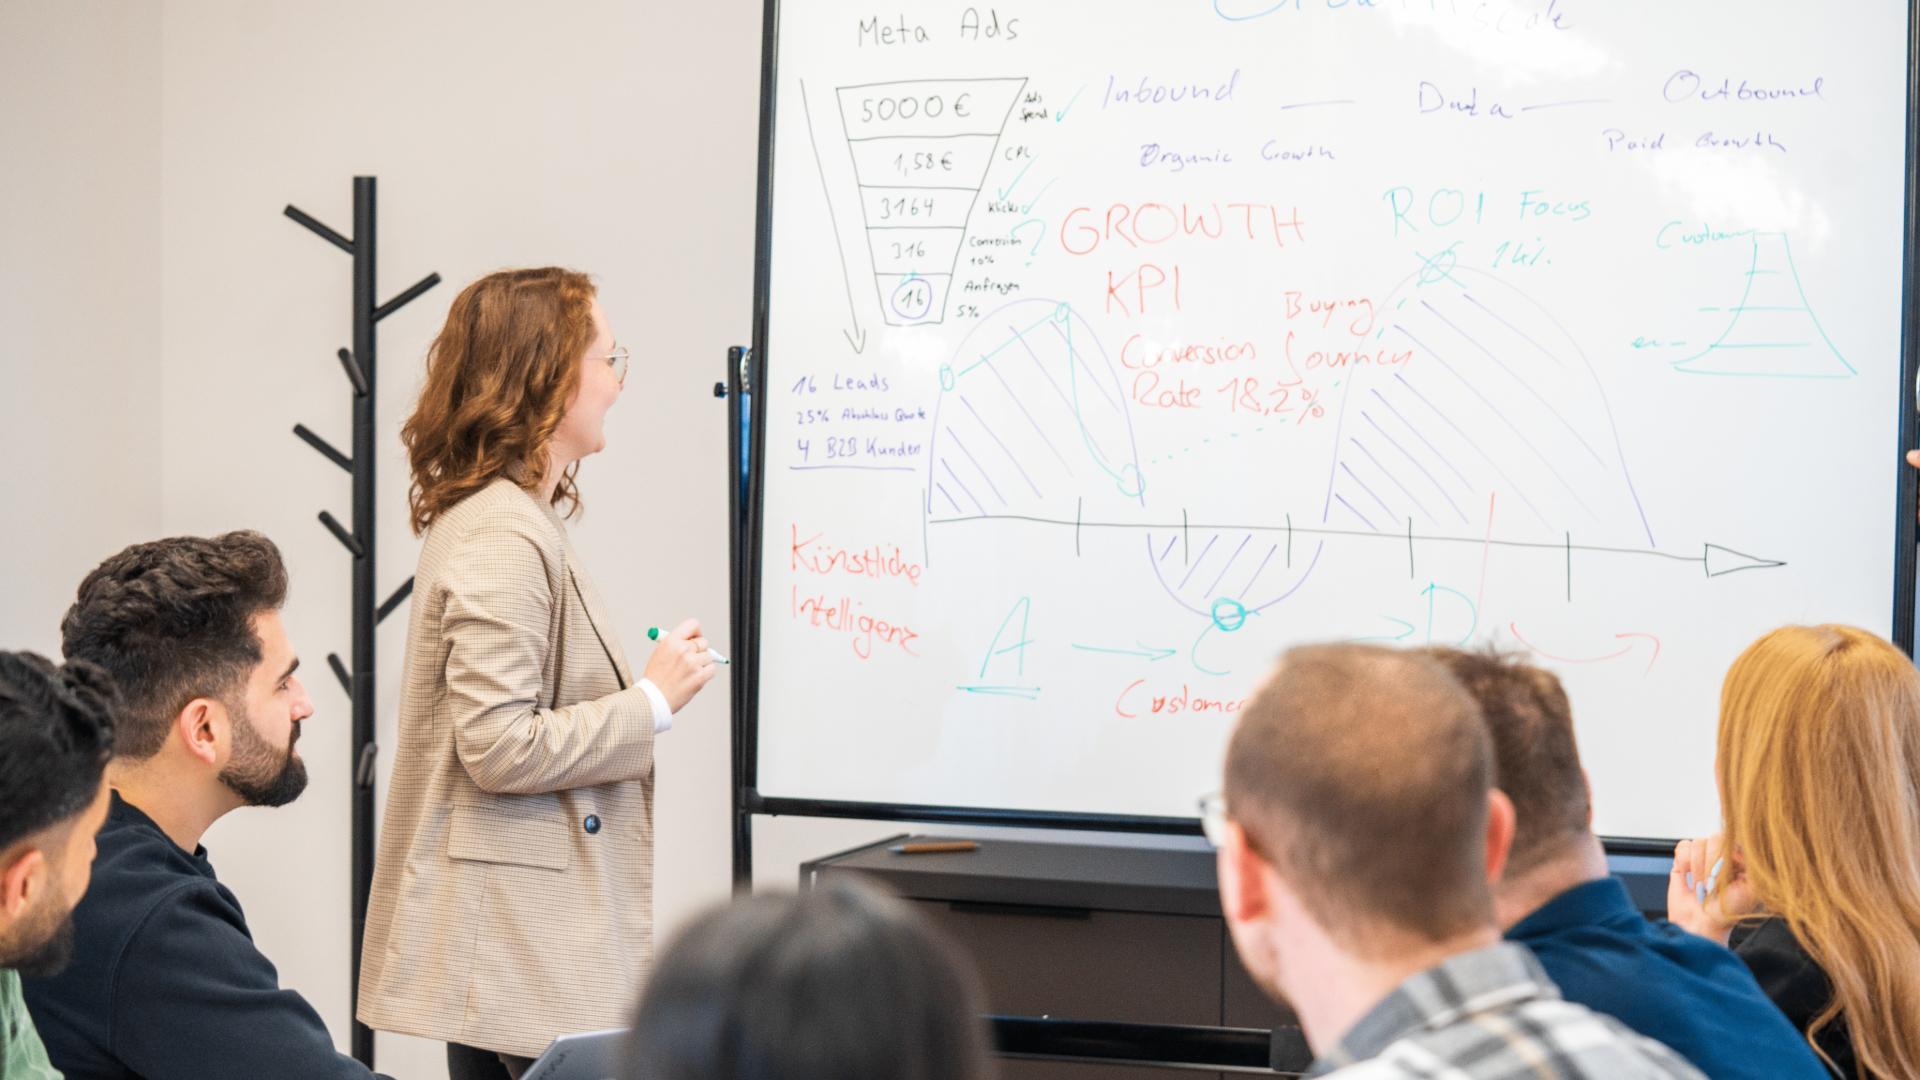 Meta Ads
5000 €
Ads
Spend
1,58 €
CPC
3164
Klicks
316
Conversion
10%
16
Anfragen
5%
16 Leads
25% Abschluss Quote
4 B2B Kunden
Künstliche
Intelligenz
Growth
Scale
Inbound — Data — Outbound
Organic Growth
Paid Growth
GROWTH
KPI
Conversion
Rate 18,2%
ROI Focus
Buying
Journey
?
A → C → D
Customer